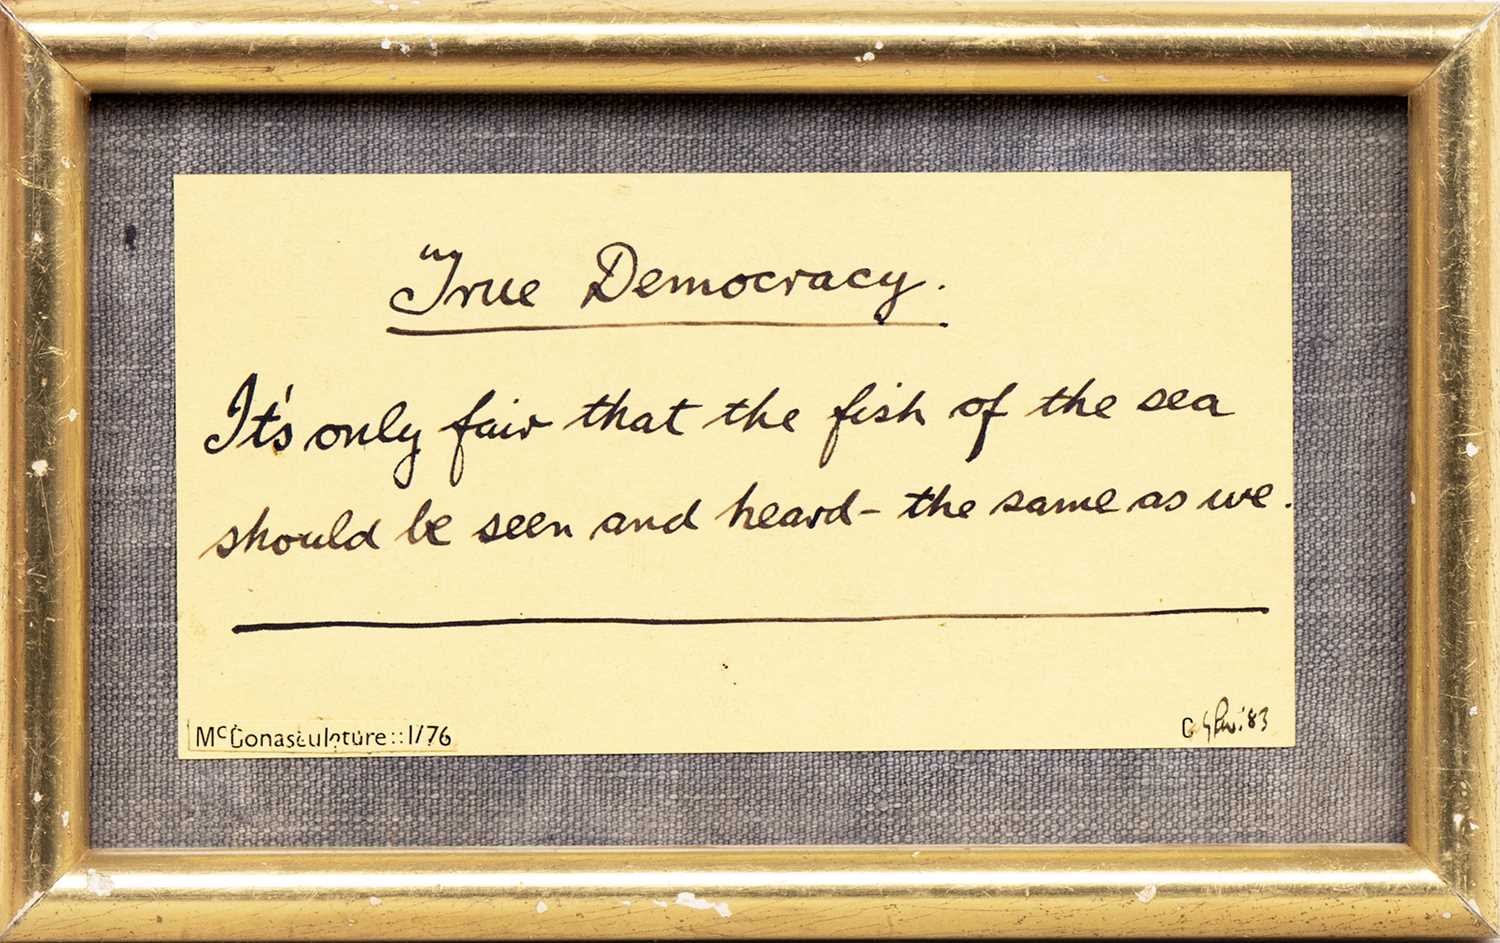 "True Democracy.
It's only fair that the fish of the sea
should be seen and heard - the same as we.
McDonasculpture::1/76
'83